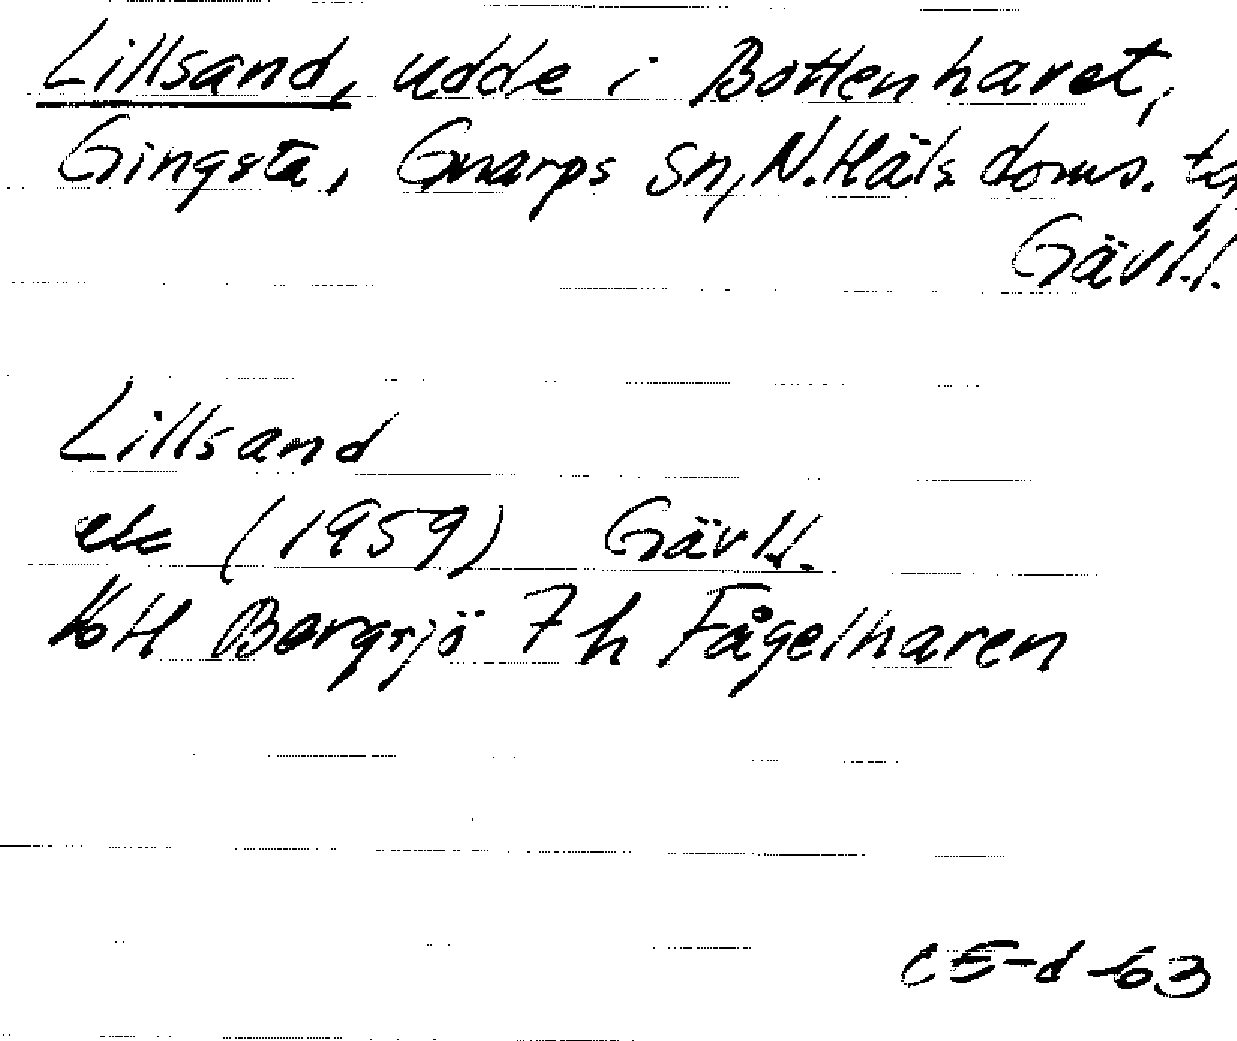 Lillsand, udde i Bottenhavet,
Gingsta, Gnarps sn, N. Häls. doms. tg
Gävl.l.
Lillsand
ek (1959) Gävl.l.
Bergsjö 7 h Fågelharen
CE-d-63